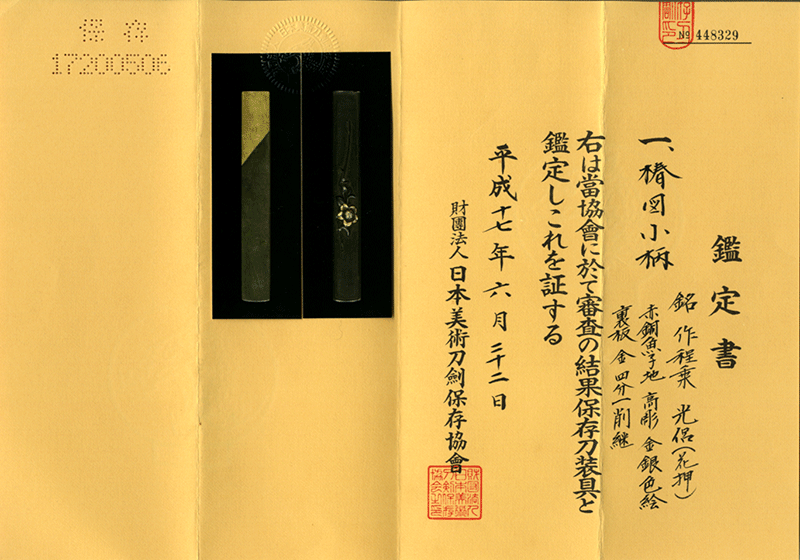 № 448329
鑑定書
一、椿図小柄
銘 作程乗 光侶(花押)
赤銅魚子地 高彫 金銀色絵
裏板 金 四分一削継
右は當協會に於て審査の結果保存刀装具と
鑑定しこれを証する
平成十七年六月二十二日
財團法人 日本美術刀劍保存協會
保存
17200506